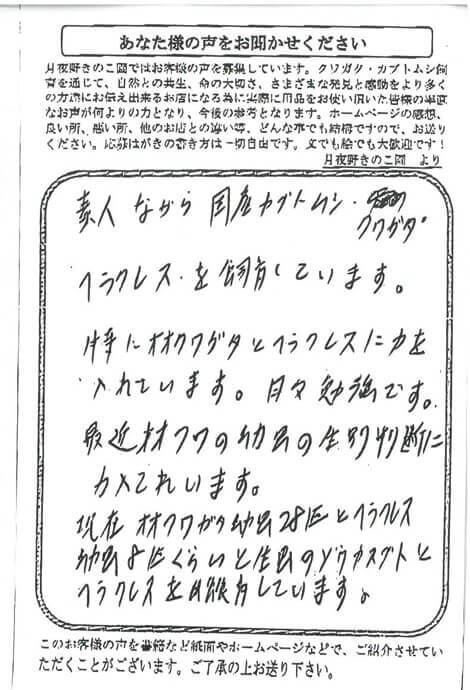 あなた様の声をお聞かせください
月夜野きのこ園ではお客様の声を募集しています。クワガタ・カブトムシ飼
育を通じて、自然との共生、命の大切さ、さまざまな発見と感動をより多く
の方達にお伝え出来るお店になる為に実際に用品をお使い頂いた皆様の率直
なお声が何よりの力となり、今後の参考となります。ホームページの感想、
良い所、悪い所、他のお店との違い等、どんな事でも結構ですので、お送り
ください。応募はがきの書き方は一切自由です。文でも絵でも大歓迎です！
月夜野きのこ園 より
素人 ながら 国産カブトムシ・
クワガタ
ヘラクレス・を飼育しています。
特にオオクワガタとヘラクレスに力を
入れています。日々勉強です。
最近オオクワの幼虫の生別判断に
力入てれいます。
現在 オオクワガタ幼虫28匹とヘラクレス
幼虫8匹くらいと生虫のゾウカブトと
ヘラクレスを 育しています。
このお客様の声を書籍など紙面やホームページなどで、ご紹介させてい
ただくことがございます。ご了承の上お送り下さい。